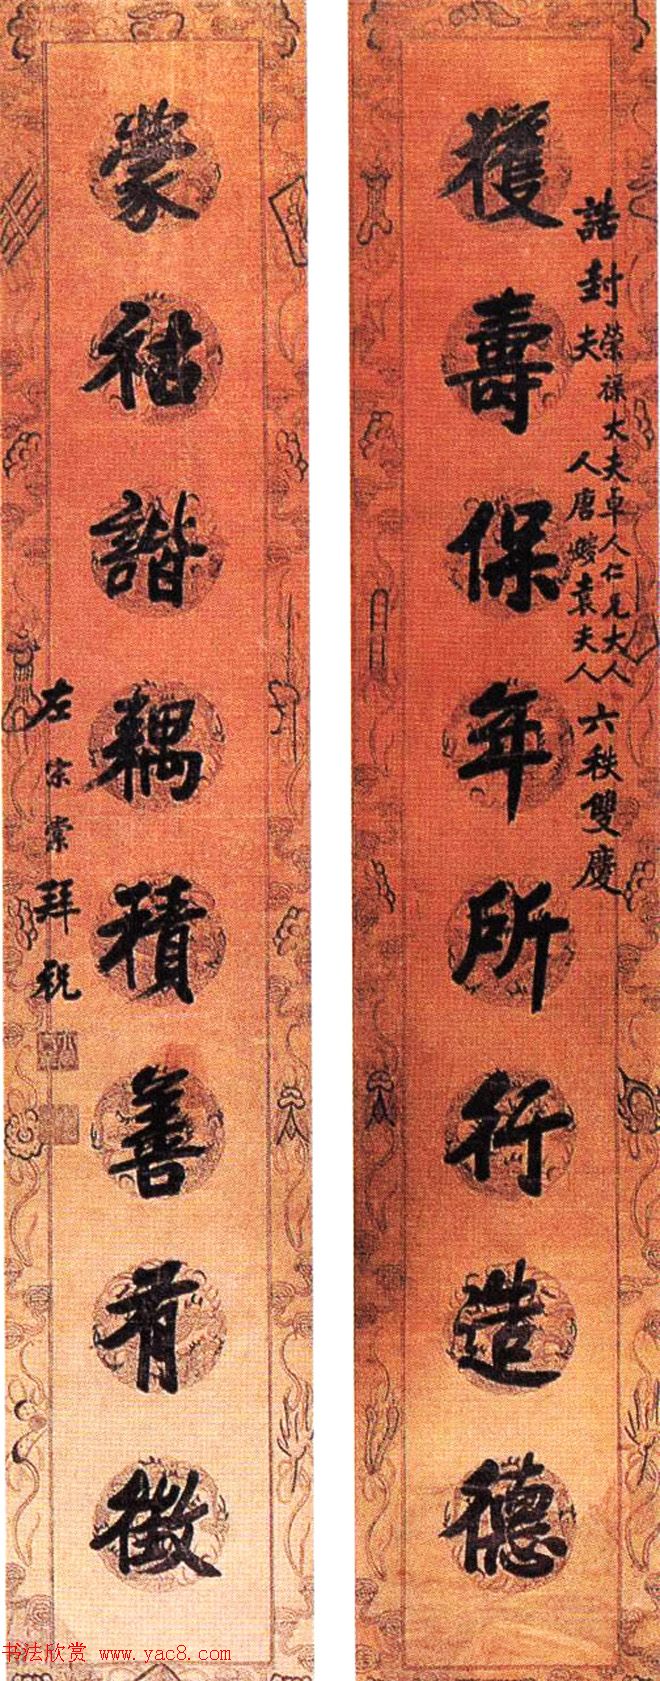 誥封榮祿大夫卓人仁兄大人
夫人唐嫂袁夫人
六秩雙慶
獲壽保年所行造德
蒙祜諧耦積善有徵
左宗棠拜祝
书法欣赏 www.yac8.com